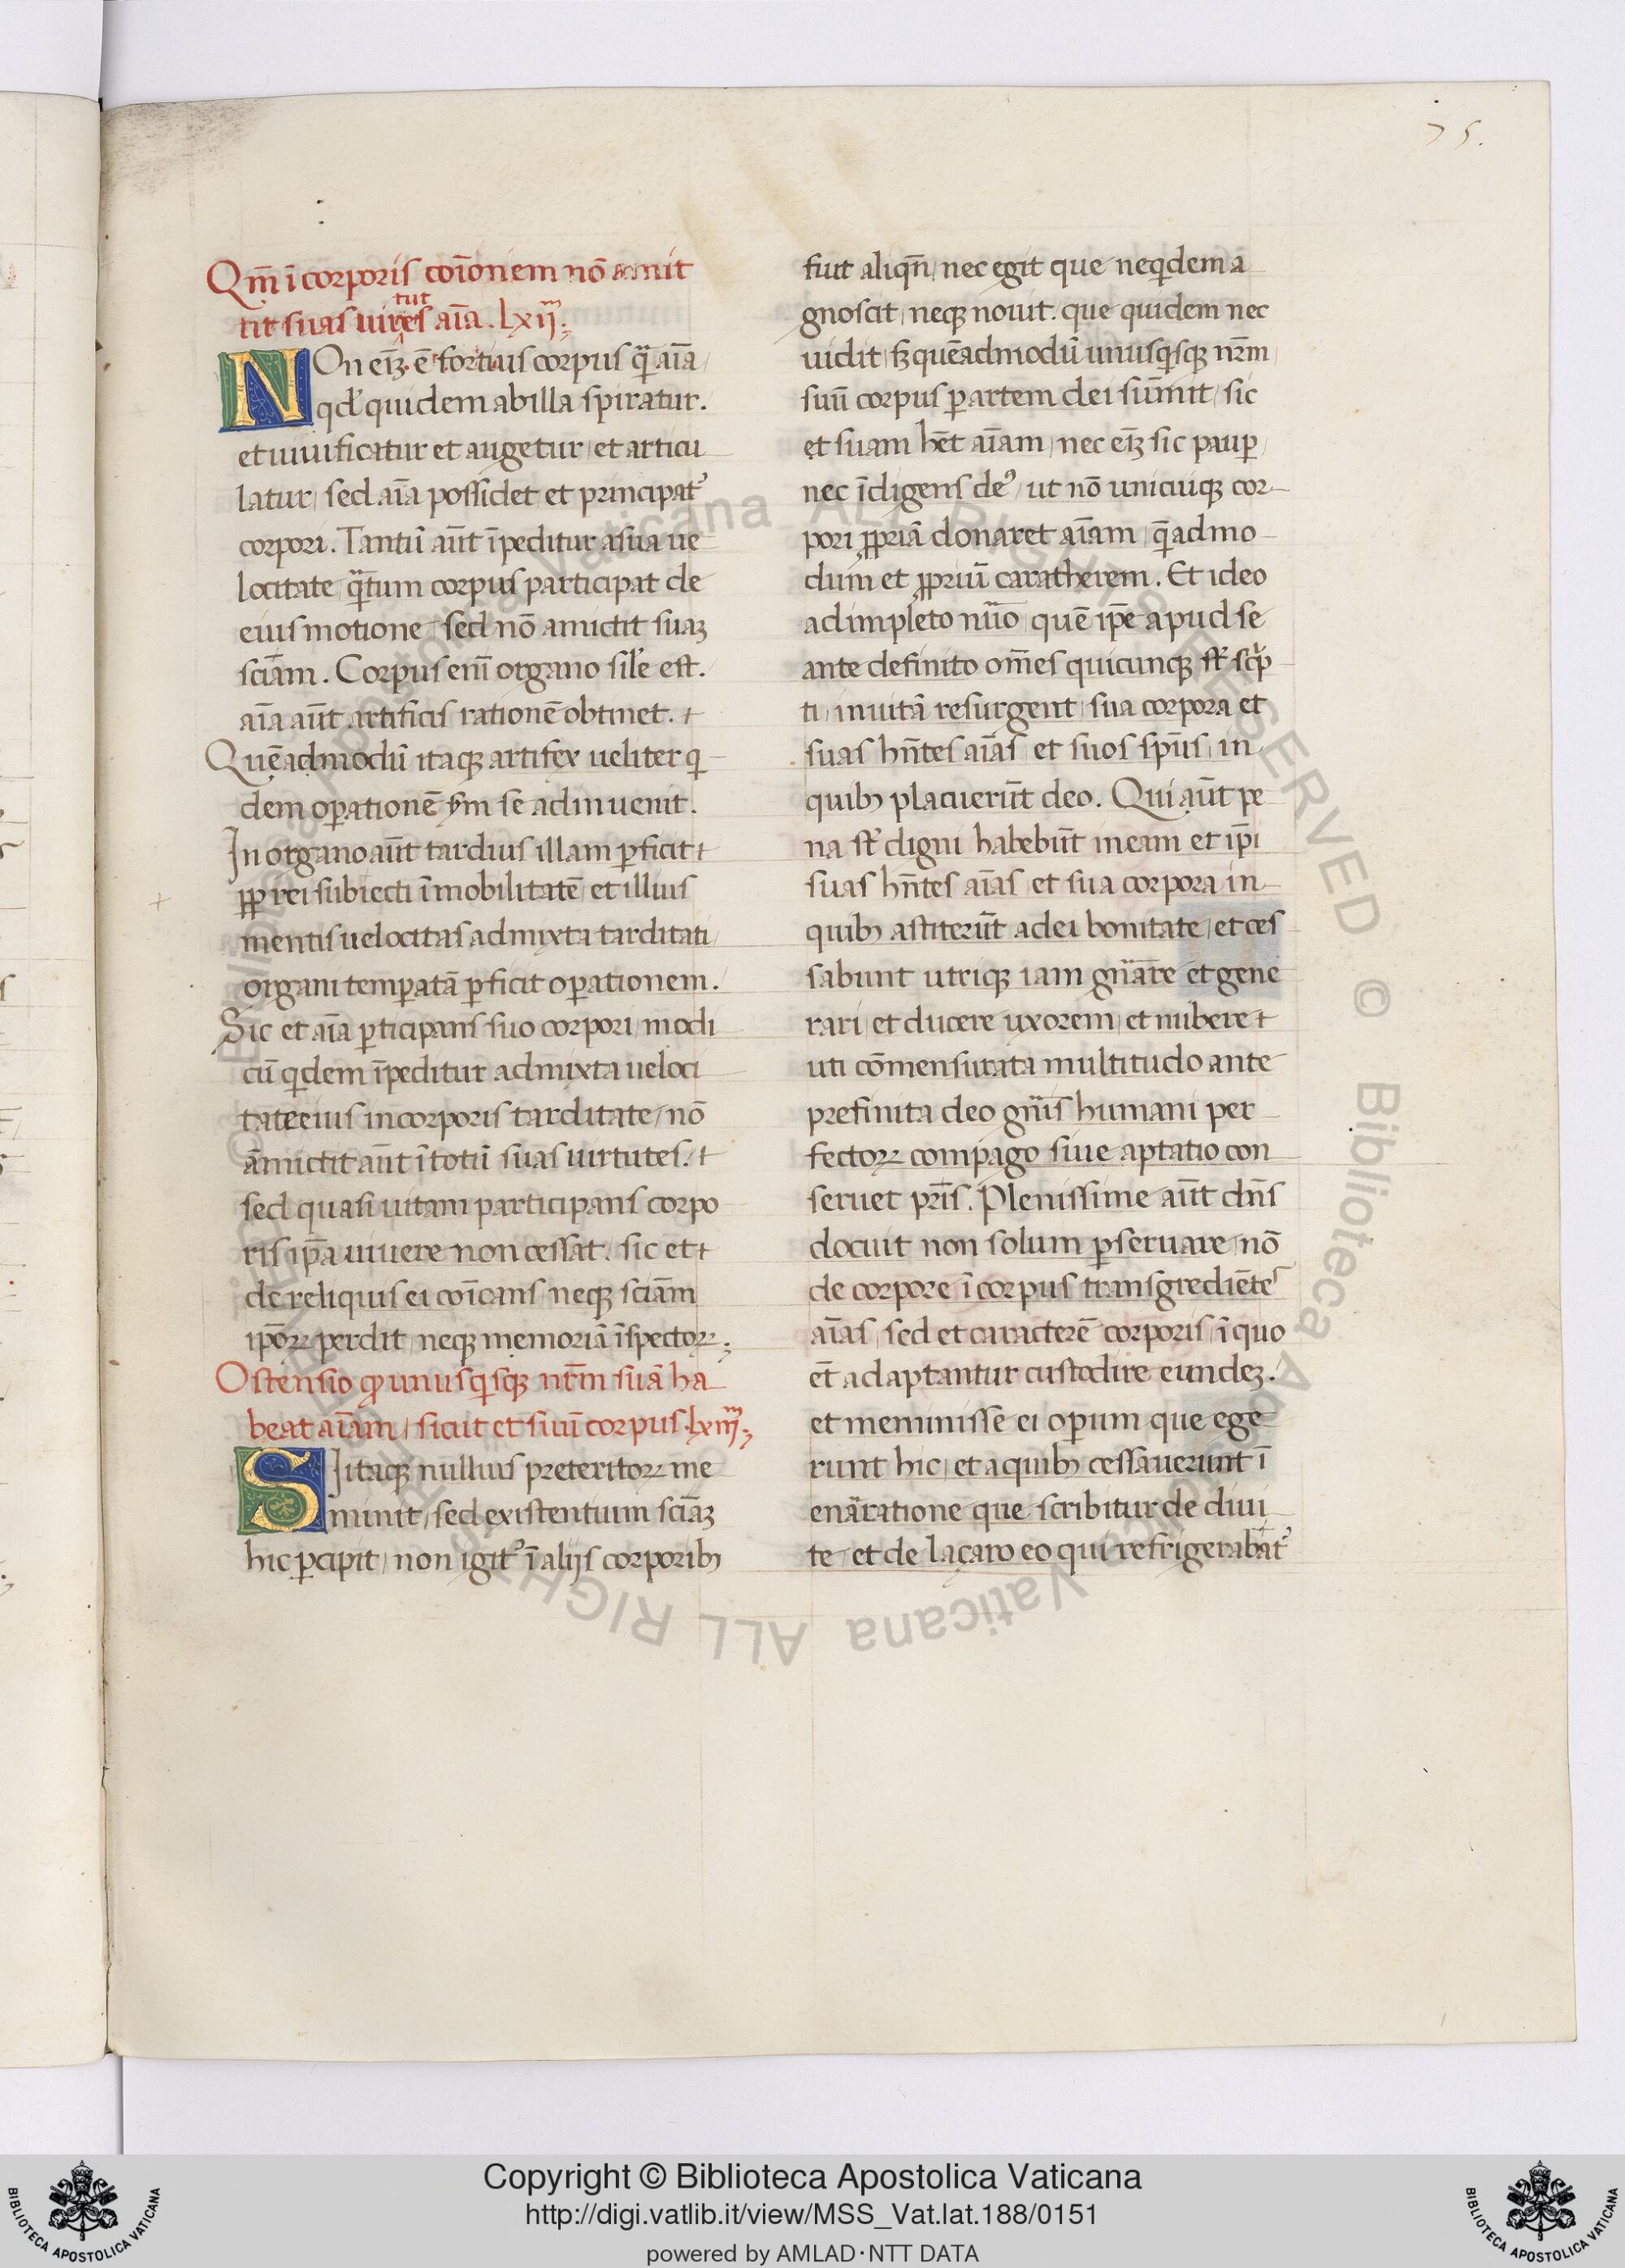 75.
Qm̄ ī corporis coīonem nō amit
tut
tit suas uires aīa . lxij.
NOn eīz ē fortius corpus q̄ aīa
qd' quidem ab illa spiratur.
et uiuificatur et augetur et articu
latur sed aīa possidet et principat᾿
corpori . Tantū aūt īpeditur a sua ue
locitate q̄tum corpus participat de
eius motione sed nō amictit suaz
sciām . Corpus enī organo sil'e est .
aīa aūt artificis rationē obtinet .
Quēadmodū itaqꝫ artifex ueliter q
dem oꝑationē ẜm se adinuenit .
In organo aūt tardius illam ꝑficit
ꝓp rei subiecti īmobilitatē et illius
mentis uelocitas admixta tarditati
organi temꝑatā ꝑficit oꝑationem .
Sic et aīa ꝑticipans suo corpori modi
cū qdem īpeditur admixta ueloci
tate eius in corporis tarditate nō
āmictit aūt ī totū suas uirtutes .
sed quasi uitam participans corpo
ris ip̄a uiuere non cessat . sic et
de reliquis ei coīcans neqꝫ sciām
ip̄oꝝ perdit neqꝫ memoriā īspectoꝝ ;
Ostensio ꝙ unusqsqꝫ nr̄m suā ha
beat aīam sicut et suū corpus . lxiij ;
SI itaqꝫ nullius preteritoꝝ me
minit sed existentium sciāz
hic ꝑcipit non igit᾿ ī alijs corporibꝫ
fuit aliqn̄ nec egit que neqdem a
gnoscit neqꝫ nouit . que quidem nec
uidit sꝫ quēadmodū unusqsqꝫ nr̄m
suū corpus ꝑ artem dei sūmit sic
et suam hēt aīam nec eīz sic pauꝑ
nec īdigens deꝰ ut nō unicuiqꝫ cor
pori ꝓpriā donaret aīam q̄admo
dum et ꝓpriū caratherem . Et ideo
adimpleto nūo quē ip̄e apud se
ante definito om̄es quicunqꝫ st̄ scꝑ
ti in uitā resurgent sua corpora et
suas hn̄tes aīas et suos sp̄us in
quibꝫ placuerūt deo . Qui aūt pe
na st̄ digni habebūt in eam et ip̄i
suas hn̄tes aīas et sua corpora in
quibꝫ astiterūt a dei bonitate et ces
sabunt utriqꝫ iam gn̄are et gene
rari et ducere uxorem et nubere
uti cōmensurata multitudo ante
prefinita deo gn̄is humani per
fectoꝝ compago siue aptatio con
seruet pr̄is . Plenissime aūt dn̄s
docuit non solum ꝑseruare nō
de corpore ī corpus transgrediētes
aīas sed et caracterē corporis ī quo
ēt adaptantur custodire eundez .
et meminisse ei oꝑum que ege
runt hic et a quibꝫ cessauerunt ī
enārratione que scribitur de diui
te et de laçaro eo qui refrigerabat᾿
Copyright © Biblioteca Apostolica Vaticana
http://digi.vatlib.it/view/MSS_Vat.lat.188/0151
powered by AMLAD·NTT DATA
BIBLIOTECA APOSTOLICA VATICANA
BIBLIOTECA APOSTOLICA VATICANA